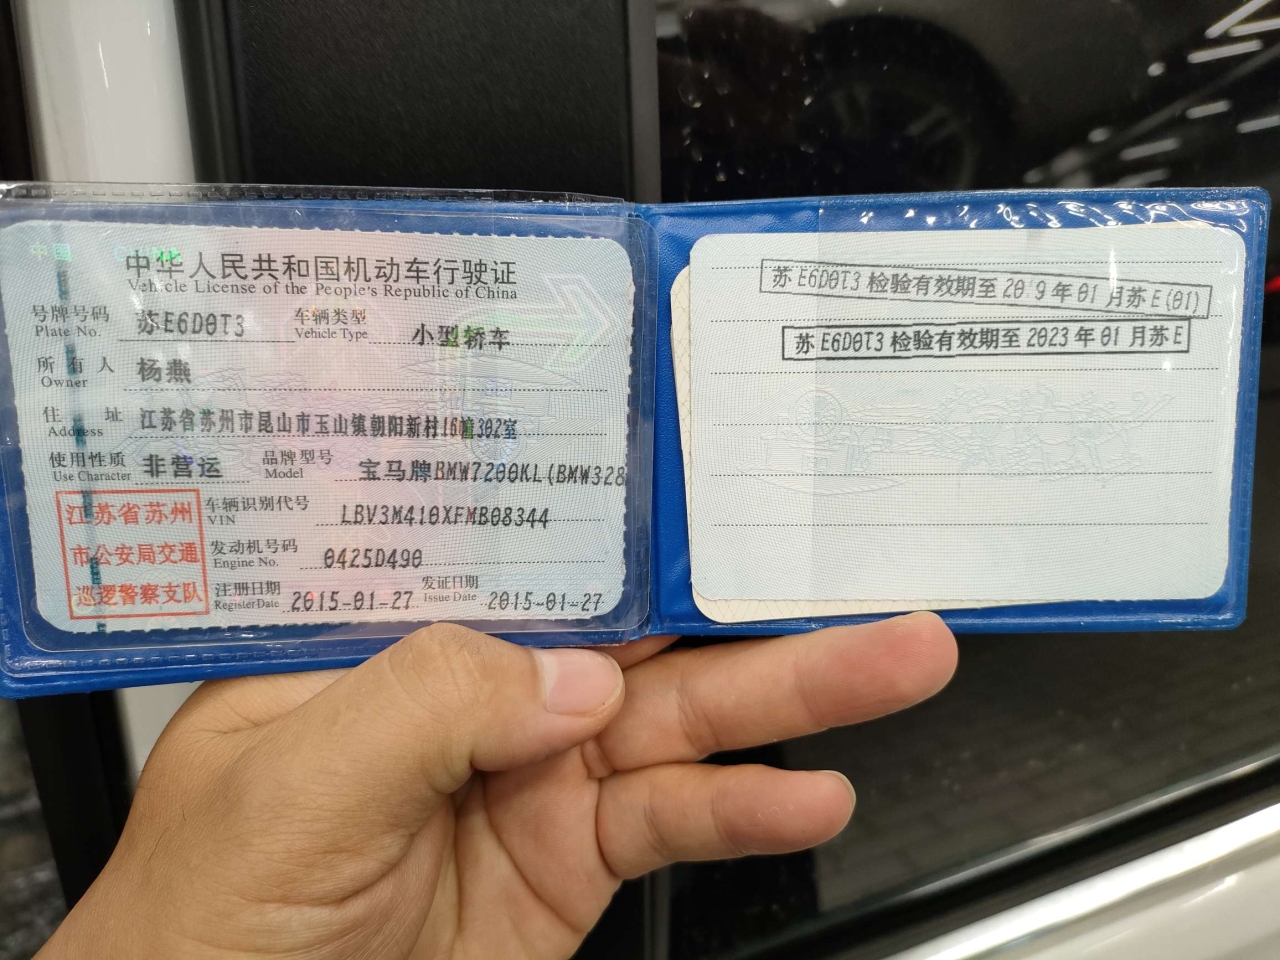 中国 CHINA
中华人民共和国机动车行驶证
Vehicle License of the People's Republic of China
号牌号码 苏E6D0T3 车辆类型 小型轿车
Plate No. Vehicle Type
所有人 杨燕
Owner
住址 江苏省苏州市昆山市玉山镇朝阳新村16幢302室
Address
使用性质 非营运 品牌型号 宝马牌BMW7200KL(BMW328
Use Character Model
江苏省苏州
市公安局交通
巡逻警察支队
车辆识别代号 LBV3M410XFMB08344
VIN
发动机号码 0425D490
Engine No.
注册日期 2015-01-27 发证日期 2015-01-27
Register Date Issue Date
苏E6D0T3 检验有效期至 2019年01月苏E(01)
苏E6D0T3 检验有效期至 2023年01月苏E